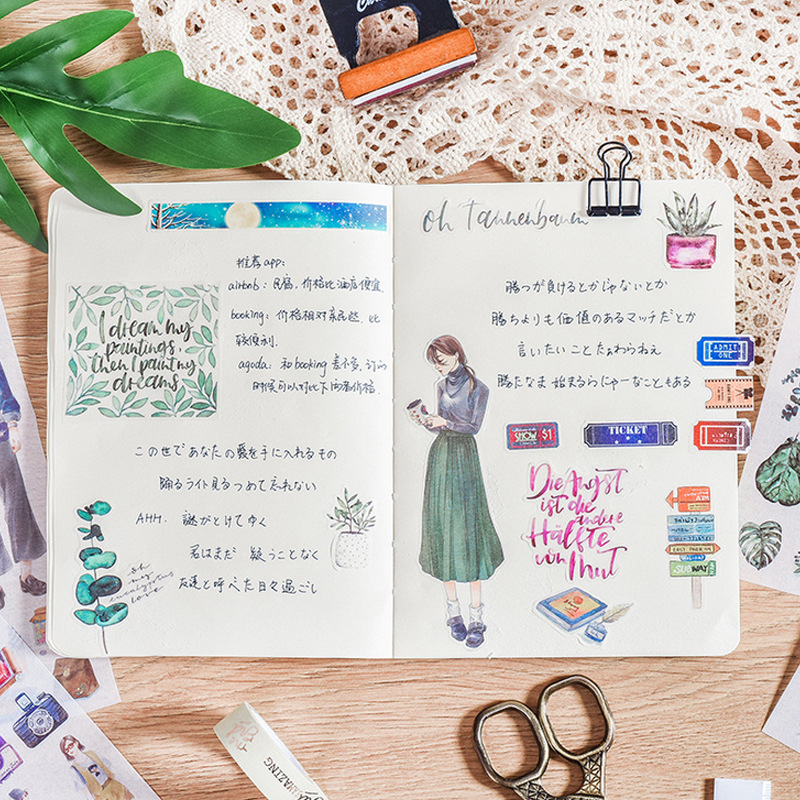 推荐app:
airbnb: 民宿,价格比酒店便宜.
booking: 价格相对亲民些, 比
较便利.
agoda: 和booking差不多, 订的
时候可以对比下两者价格.
I dream my
paintings,
then I paint my
dreams
この世であなたの愛を手に入れるもの
踊るライト見るつめて忘れない
AHH. 謎がとけてゆく
君はまだ 疑うことなく
友達と呼べた日々過ごし
oh
my
eucalyptus
love
oh Tannenbaum
勝つが負けるとかじゃないとか
勝ちよりも価値のあるマッチだとか
言いたいことたぁわらねえ
勝たなま始まるらにゃーなこともある
ADMIT
ONE
SHOW $1
TICKET
Die Angst
ist die
andere
Hälfte
von Mut
SUBWAY
AMAZING